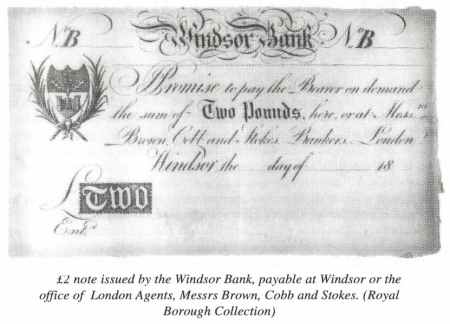 N. B Windsor Bank N. B
I Promise to pay the Bearer on demand
the sum of Two Pounds, here, or at Mess.rs
Brown, Cobb and Stokes Bankers London
Windsor the day of 18
£ TWO
Ent.d
£2 note issued by the Windsor Bank, payable at Windsor or the
office of London Agents, Messrs Brown, Cobb and Stokes. (Royal
Borough Collection)